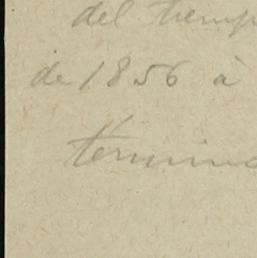 del tiemp
de 1856 à
termino